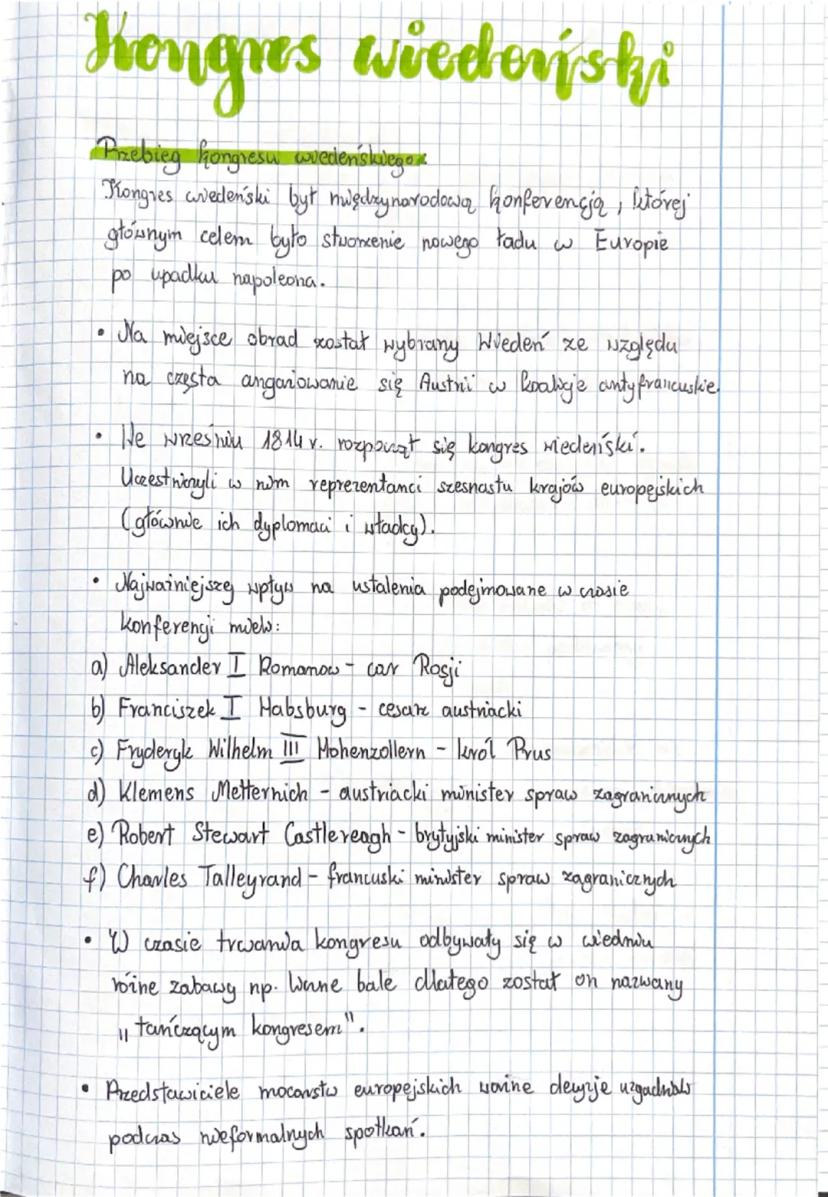 Kongres wiedeński
Przebieg kongresu wiedeńskiego:
Kongres wiedeński był międzynarodową konferencją, której
głównym celem było stworzenie nowego ładu w Europie
po upadku napoleona.
• Na miejsce obrad został wybrany Wiedeń ze względu
na częsta angażowanie się Austrii w koalicje antyfrancuskie.
• We wrześniu 1814 r. rozpoczął się kongres wiedeński.
Uczestniczyli w nim reprezentanci szesnastu krajów europejskich
(głównie ich dyplomaci i władcy).
• Najważniejszy wpływ na ustalenia podejmowane w czasie
konferencji mieli:
a) Aleksander I Romanow - car Rosji
b) Franciszek I Habsburg - cesarz austriacki
c) Fryderyk Wilhelm III Hohenzollern - król Prus
d) Klemens Metternich - austriacki minister spraw zagranicznych
e) Robert Stewart Castlereagh - brytyjski minister spraw zagranicznych
f) Charles Talleyrand - francuski minister spraw zagranicznych
• W czasie trwania kongresu odbywały się w wiedniu
różne zabawy np. liczne bale dlatego został on nazwany
„tańczącym kongresem".
• Przedstawiciele mocarstw europejskich ważne decyzje uzgadniali
podczas nieformalnych spotkań.